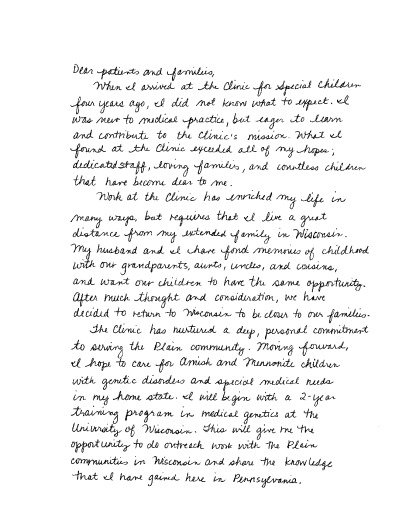 Dear patients and families,
When I arrived at the Clinic for Special Children
four years ago, I did not know what to expect. I
was new to medical practice, but eager to learn
and contribute to the Clinic's mission. What I
found at the Clinic exceeded all of my hopes;
dedicated staff, loving families, and countless children
that have become dear to me.
Work at the Clinic has enriched my life in
many ways, but requires that I live a great
distance from my extended family in Wisconsin.
My husband and I have fond memories of childhood
with our grandparents, aunts, uncles, and cousins,
and want our children to have the same opportunity.
After much thought and consideration, we have
decided to return to Wisconsin to be closer to our families.
The Clinic has nurtured a deep, personal commitment
to serving the Plain community. Moving forward,
I hope to care for Amish and Mennonite children
with genetic disorders and special medical needs
in my home state. I will begin with a 2-year
training program in medical genetics at the
University of Wisconsin. This will give me the
opportunity to do outreach work with the Plain
communities in Wisconsin and share the knowledge
that I have gained here in Pennsylvania.